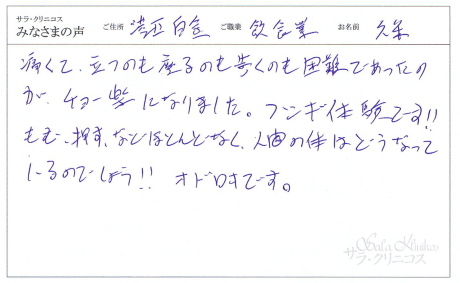 サラ・クリニコス
みなさまの声 ご住所 港区白金 ご職業 飲食業 お名前
痛くて、立つのも座るのも歩くのも困難であったの
が、チョー楽になりました。フシギ体験です!!
もむ、押す、などほとんどなく、人間の体はどうなって
いるのでしょう!! オドロキです。
Sala Klinikos
サラ・クリニコス